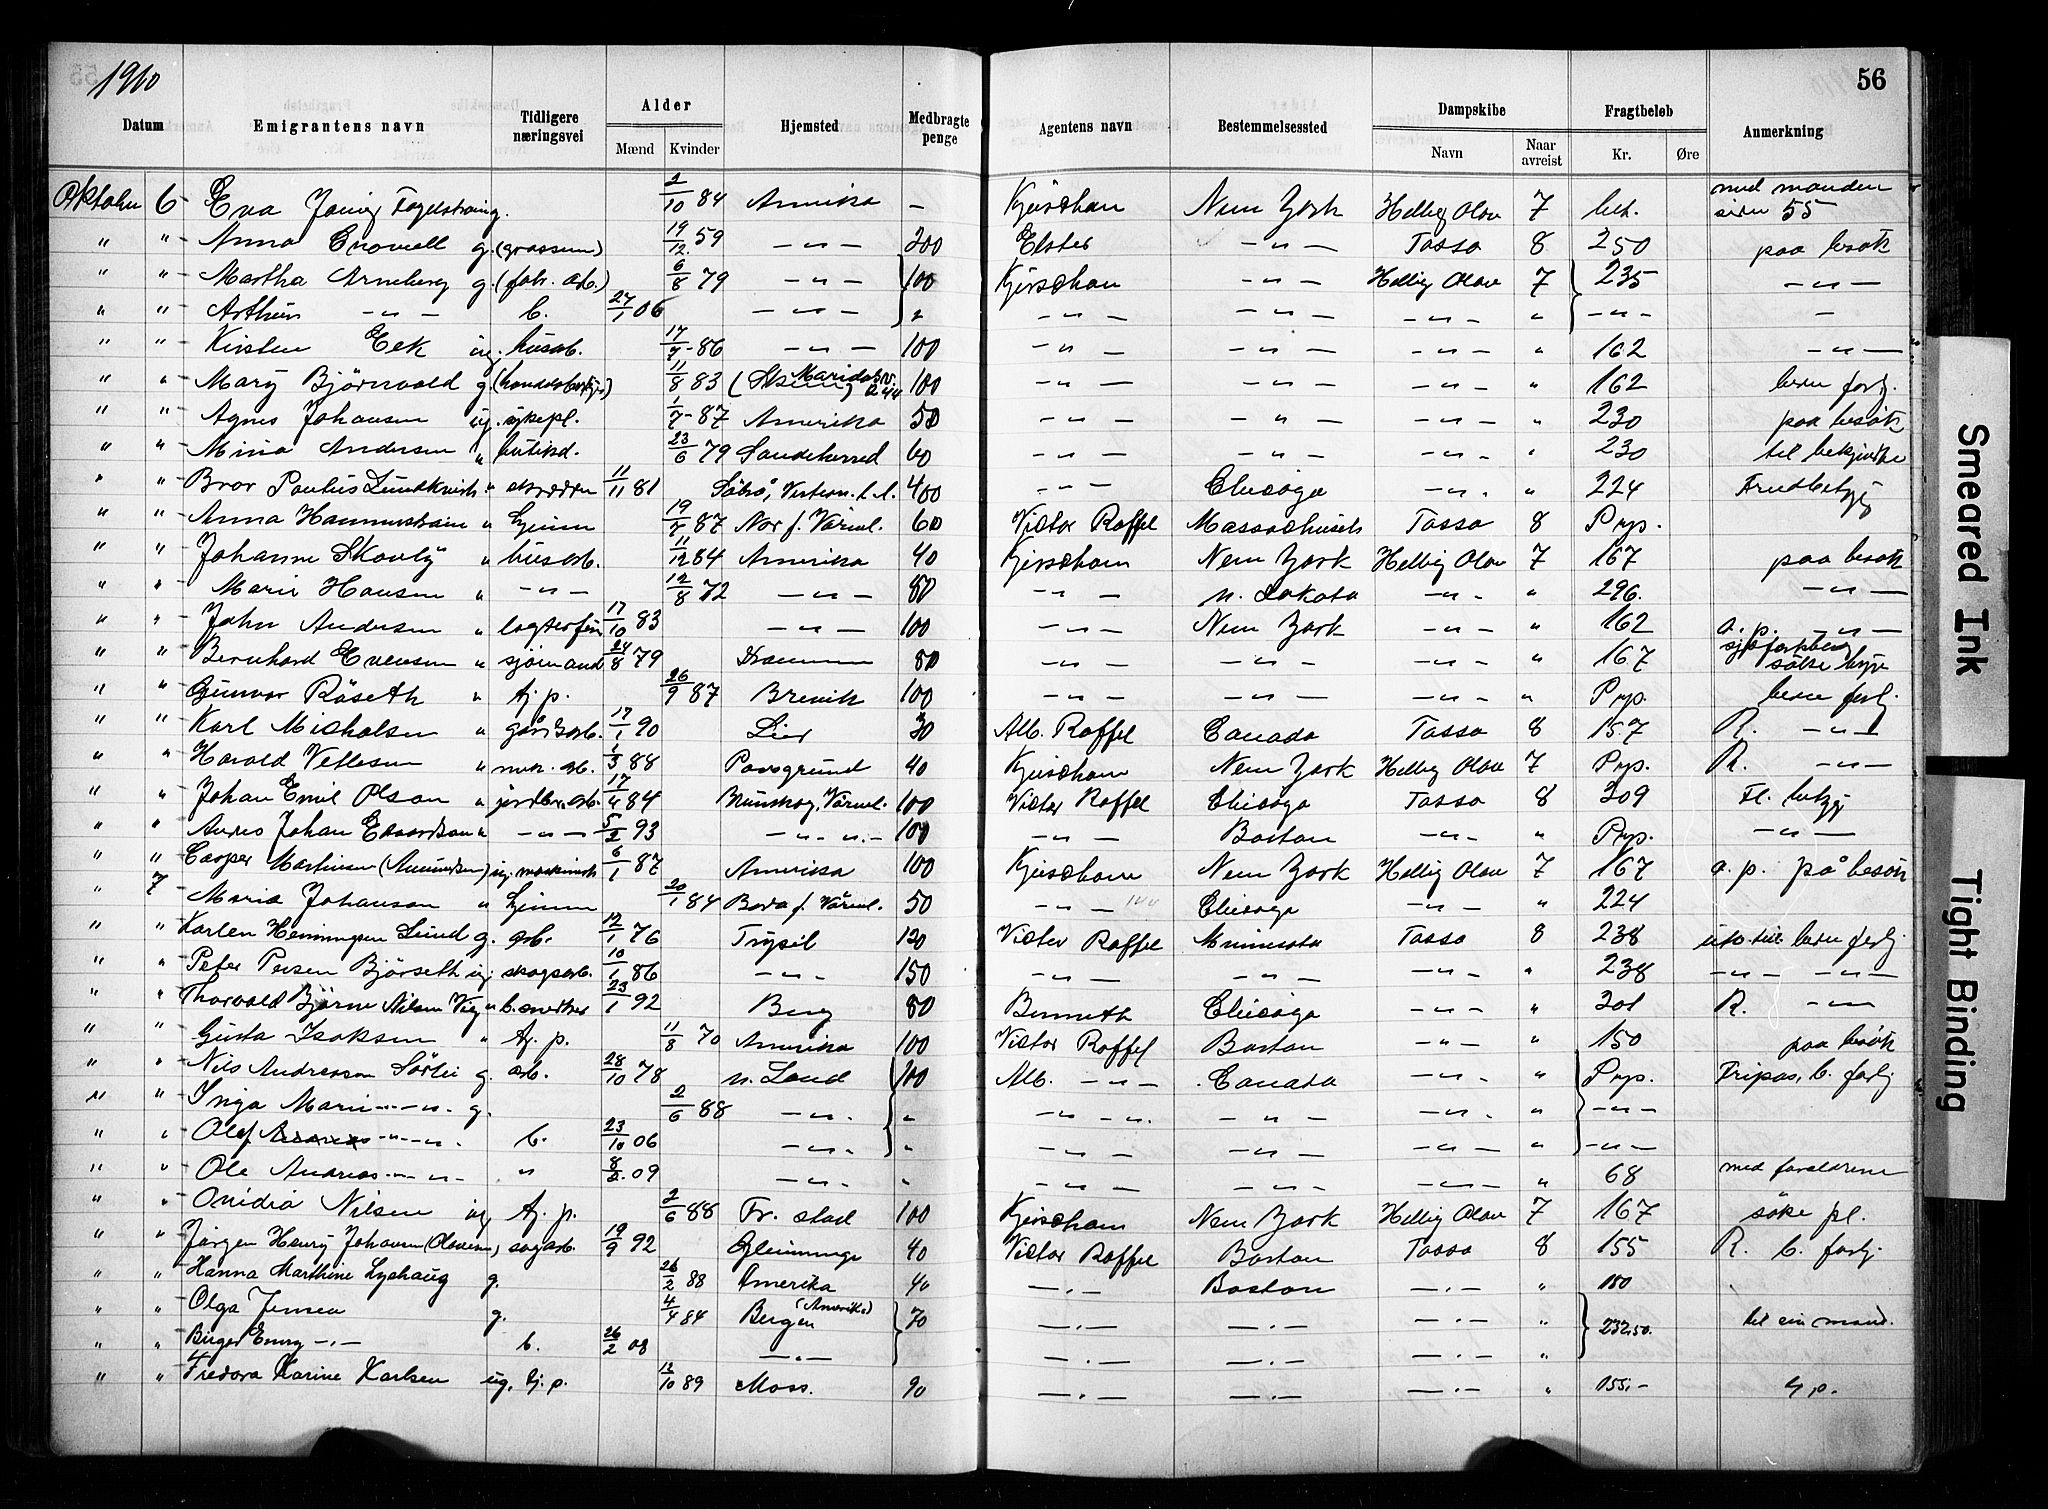 1910
56
Datum Emigrantens navn Tidligere næringsvei Alder Mænd Kvinder Hjemsted Medbragte penge Agentens navn Bestemmelsessted Dampskibe Navn Naar avreist Fragtbeløb Kr. Øre Anmerkning
6 Eva 2/10 84 Amerika — New York Hellig Olav 7 med manden siden 55
" " Anna g. 19/12 59 — " — 200 Elster — " — Tasso 8 250 paa besøk
" " Martha Arneberg g. (fabr. arb.) 6/8 79 — " — 100 — " — Hellig Olav 7 235 — " —
" " Arthur — " — b. 27/1 06 — " — " — " — — " — — " — " — " — —
" " Kirsten Eek ug. husarb. 17/7 86 — " — 100 — " — — " — — " — " 162 — " —
" " Mary Björnvold g. 11/8 83 Maridalsv. 244 100 — " — — " — — " — " 162
" " Agnes Johansen ug. sykepl. 1/7 87 Amerika 50 — " — — " — — " — " 230 paa besøk
" " Mina Andersen " butikd. 23/6 79 Sandeherred 60 — " — — " — — " — " 230 til bekjendte
" " Bror Paulus Lundkvist " skrædder 11/11 81 400 — " — Chicago — " — " 224
" " Anna " tjenm 19/7 87 Nor f. Värml. 60 Victor Roffel Massachusets Tasso 8 Pryp.
" " Johanne Skovly " husarb. 11/12 84 Amerika 40 New York Hellig Olav 7 167 paa besøk
" " Marie Hansen " — " — 12/8 72 — " — 80 — " — n. Dakota — " — " 296. — " —
" " John Andersen " 17/10 83 — " — 100 — " — New York — " — " 162 a. p. — " —
" " Bernhard Evensen " sjømand 24/8 79 Drammen 80 — " — — " — — " — " 167 søke hyre
" " Gunvor Röseth " tj. p. 26/9 87 Brevik 100 — " — — " — — " — " Pryp. bedre fortj.
" " Karl Nicholsen " gårdsarb. 17/1 90 Lier 30 Alb. Roffel Canada Tasso 8 157 R. — " —
" " Harald Vetlesen " mek. arb. 1/3 88 Porsgrund 40 New York Hellig Olav 7 Pryp. R. — " —
" " Johan Emil Olson " jordbr. arb. 17/4 84 Brunskog, Värml. 100 Victor Roffel Chicago Tasso 8 309
" " Johan " — " — 5/2 93 — " — " — 100 — " — Boston — " — " Pryp. — " —
" " Casper Martinsen (Amundsen) ug. maskinist 6/1 87 Amerika 100 New York Hellig Olav 7 167 a. p. på besøk
" 7 Maria Johanson " tjenm 20/1 84 f. Värml. 50 — " — Chicago — " — " 224
" " Karlen Henningsen Lund g. arb. 12/1 76 Trysil 120 Victor Roffel Minnesota Tasso 8 238
" " Peter Persen Björseth ug. skogsarb. 10/1 86 — " — 150 — " — — " — — " — " 238 — " — — " —
" " Thorvald Björne Nilsen Vig " 23/1 92 Berg 80 Bennett Chicago — " — " 301 R. — " —
" " Gusta Isaksen " tj. p. 11/8 70 Amerika 100 Victor Roffel Boston — " — " 150 paa besøk
" " Nils Andreasson Sörlie g. arb. 28/10 78 n. Land 100 Alb. — " — Canada — " — " Pryp. Fripas, b. fortj
" " Inga Marie — " — g. 2/6 88 — " — " — " — — " — — " — " — " —
" " Olaf — " — b. 23/10 06 — " — " — " — — " — — " — " — " —
" " Ole Andreas — " — " 8/2 09 — " — " — " — — " — — " — " 68 med forældrene
" " Ovidia Nilsen ug. tj. p. 2/6 88 Fr. stad 100 New York Hellig Olav 7 167 søke pl.
" " Jörgen Henry Johansen (Olausen) sagarb. 19/9 92 Glemminge 40 Victor Roffel Boston Tasso 8 155 R. b. fortj.
" " Hanna Marthine Lyshaug g. 26/2 88 Amerika 40 — " — Boston — " — " 150
" " Olga Jensen g. 4/4 84 Bergen (Amerika) 70 — " — — " — — " — " 232,50 til sin mand.
" " Birger Enry — " — b. 26/2 08 — " — — " — — " — — " — "
" " Fredora Karine Karlsen ug. tj. p. 12/10 89 Moss. 90 — " — — " — — " — " 155.—
Smeared Ink
Tight Binding